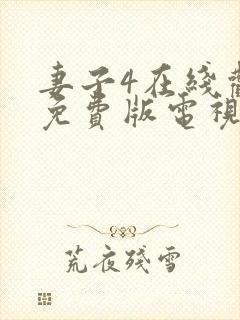 妻子4在綫
免費版電視
荒夜殘雪